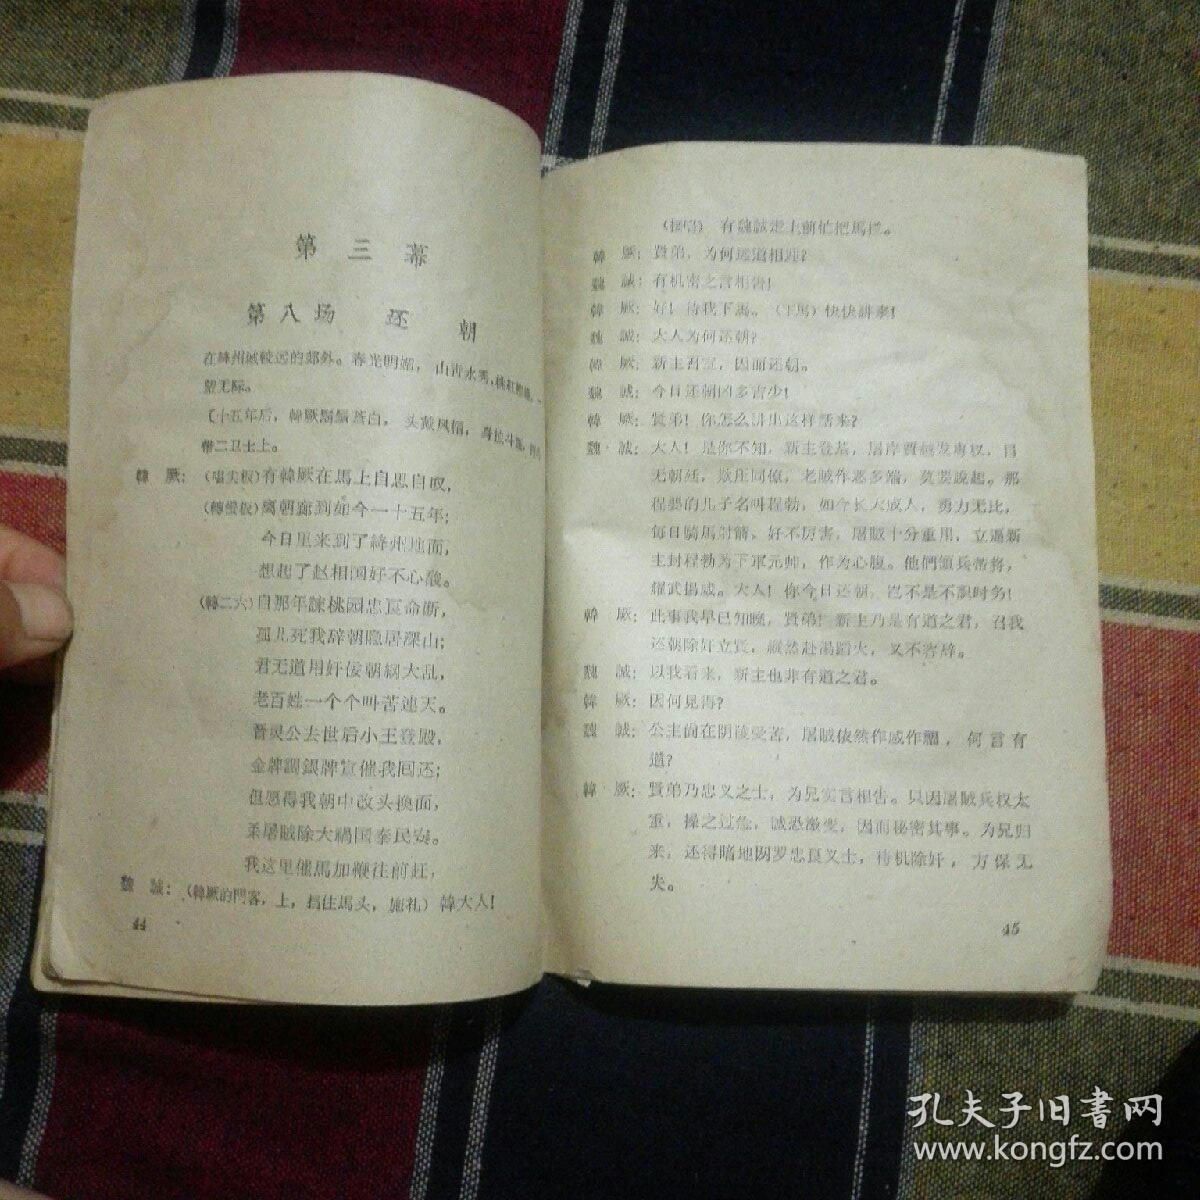 第三幕
第八场 还朝
在絳州城較远的郊外。春光明媚，山青水秀，桃红柳綠，一
望无际。
〔十五年后，韓厥鬍鬚蒼白，头戴风帽，身披斗篷，
带二卫士上。
韓厥：（唱尖板）有韓厥在馬上自思自叹，
（轉慢板）离朝廊到如今一十五年；
今日里来到了絳州地面，
想起了赵相国好不心酸。
（轉二六）自那年諫桃园忠良命断，
孤儿死我辞朝隐居深山；
君无道用奸佞朝綱大乱，
老百姓一个个叫苦連天。
晋灵公去世后小王登殿，
金牌調銀牌宣催我回还；
但愿得我朝中改头換面，
杀屠贼除大禍国泰民安。
我这里催馬加鞭往前赶，
魏誠：（韓厥的門客，上，挡住馬头，施礼）韓大人！
44
（接唱）有魏誠走上前忙把馬拦。
韓厥：賢弟，为何远道相迎？
魏誠：有机密之言相告！
韓厥：好！待我下馬。（下馬）快快講来！
魏誠：大人为何还朝？
韓厥：新主召宣，因而还朝。
魏誠：今日还朝凶多吉少！
韓厥：賢弟！你怎么讲出这样話来？
魏誠：大人！是你不知，新主登基，屠岸賈越发专权，目
无朝廷，欺压同僚，老贼作恶多端，莫要說起。那
程嬰的儿子名叫程勃，如今长大成人，勇力无比，
每日騎馬射箭，好不厉害，屠贼十分重用，立逼新
主封程勃为下軍元帅，作为心腹。他們領兵带将，
耀武揚威。大人！你今日还朝，岂不是不識时务！
韓厥：此事我早已知晓，賢弟！新主乃是有道之君，召我
还朝除奸立賢，縱然赴湯蹈火，义不容辞。
魏誠：以我看来，新主也非有道之君。
韓厥：因何見得？
魏誠：公主尙在阴陵受苦，屠贼依然作威作福，何言有
道？
韓厥：賢弟乃忠义之士，为兄实言相告。只因屠贼兵权太
重，操之过急，誠恐激变，因而秘密其事。为兄归
来，还得暗地网罗忠良义士，待机除奸，万保无
失。
45
孔夫子旧書网
www.kongfz.com